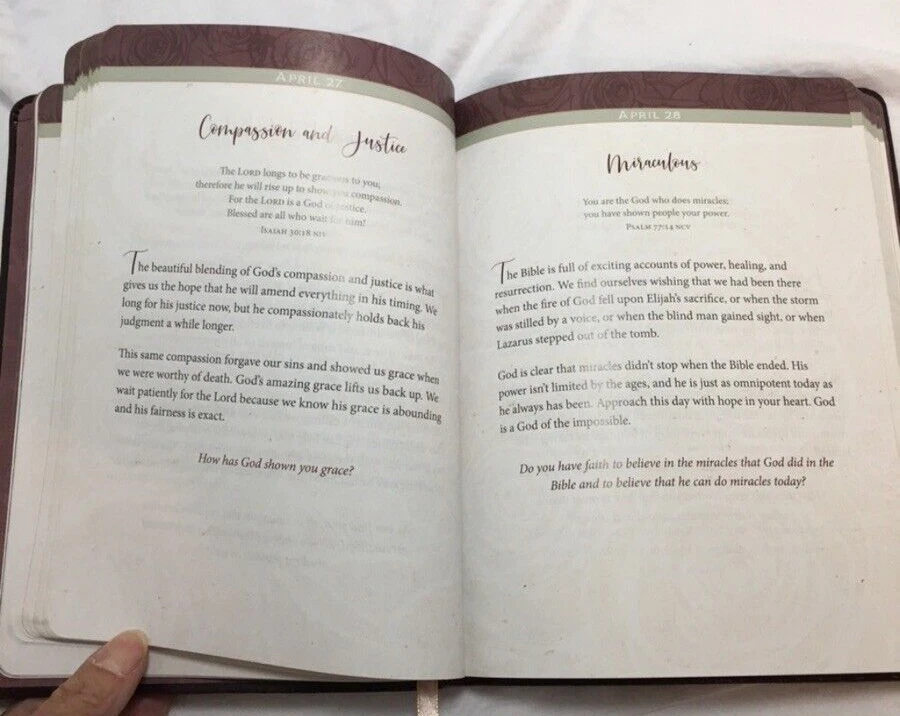 APRIL 27
Compassion and Justice
The LORD longs to be gracious to you;
therefore he will rise up to show you compassion.
For the LORD is a God of justice.
Blessed are all who wait for him!
ISAIAH 30:18 NIV
The beautiful blending of God's compassion and justice is what
gives us the hope that he will amend everything in his timing. We
long for his justice now, but he compassionately holds back his
judgment a while longer.
This same compassion forgave our sins and showed us grace when
we were worthy of death. God's amazing grace lifts us back up. We
wait patiently for the Lord because we know his grace is abounding
and his fairness is exact.
How has God shown you grace?
APRIL 28
Miraculous
You are the God who does miracles;
you have shown people your power.
PSALM 77:14 NCV
The Bible is full of exciting accounts of power, healing, and
resurrection. We find ourselves wishing that we had been there
when the fire of God fell upon Elijah's sacrifice, or when the storm
was stilled by a voice, or when the blind man gained sight, or when
Lazarus stepped out of the tomb.
God is clear that miracles didn't stop when the Bible ended. His
power isn't limited by the ages, and he is just as omnipotent today as
he always has been. Approach this day with hope in your heart. God
is a God of the impossible.
Do you have faith to believe in the miracles that God did in the
Bible and to believe that he can do miracles today?